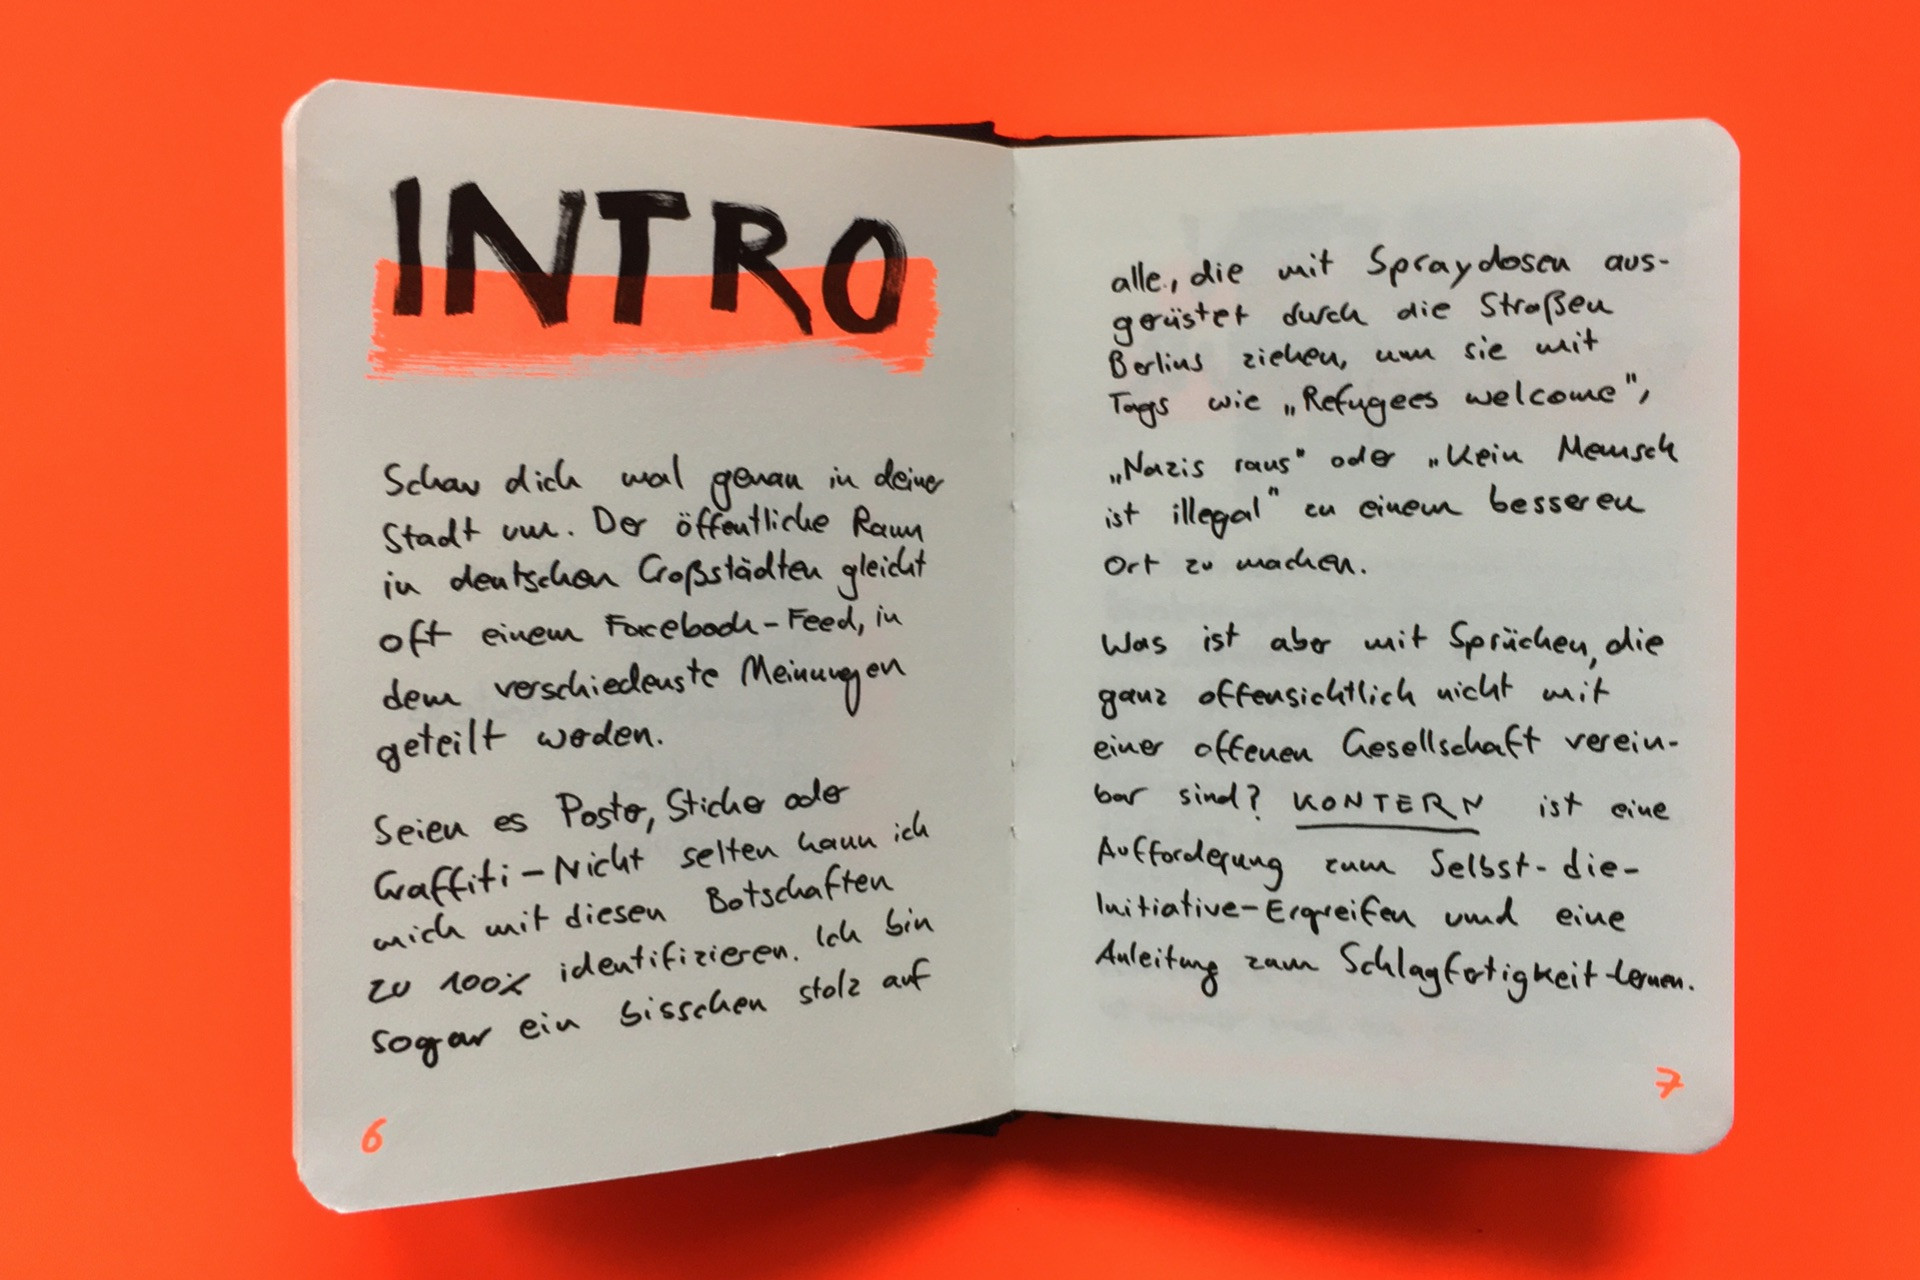 INTRO
Schau dich mal genau in deiner
Stadt um. Der öffentliche Raum
in deutschen Großstädten gleicht
oft einem Facebook-Feed, in
dem verschiedenste Meinungen
geteilt werden.
Seien es Poster, Sticker oder
Graffiti – Nicht selten kann ich
mich mit diesen Botschaften
zu 100% identifizieren. Ich bin
sogar ein bisschen stolz auf
6
alle, die mit Spraydosen aus-
gerüstet durch die Straßen
Berlins ziehen, um sie mit
Tags wie „Refugees welcome",
„Nazis raus" oder „Kein Mensch
ist illegal" zu einem besseren
Ort zu machen.
Was ist aber mit Sprüchen, die
ganz offensichtlich nicht mit
einer offenen Gesellschaft verein-
bar sind? KONTERN ist eine
Aufforderung zum Selbst-die-
Initiative-Ergreifen und eine
Anleitung zum Schlagfertigkeit-lernen.
7